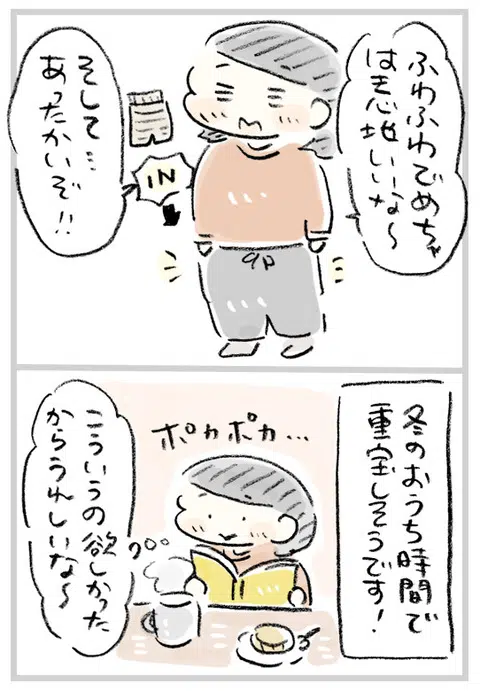 ふわふわでめちゃ
はき心地いいな〜
そして…
あったかいぞ!!
IN
冬のおうち時間で
重宝しそうです!
ポカポカ…
こういうの欲しかった
からうれしいな〜